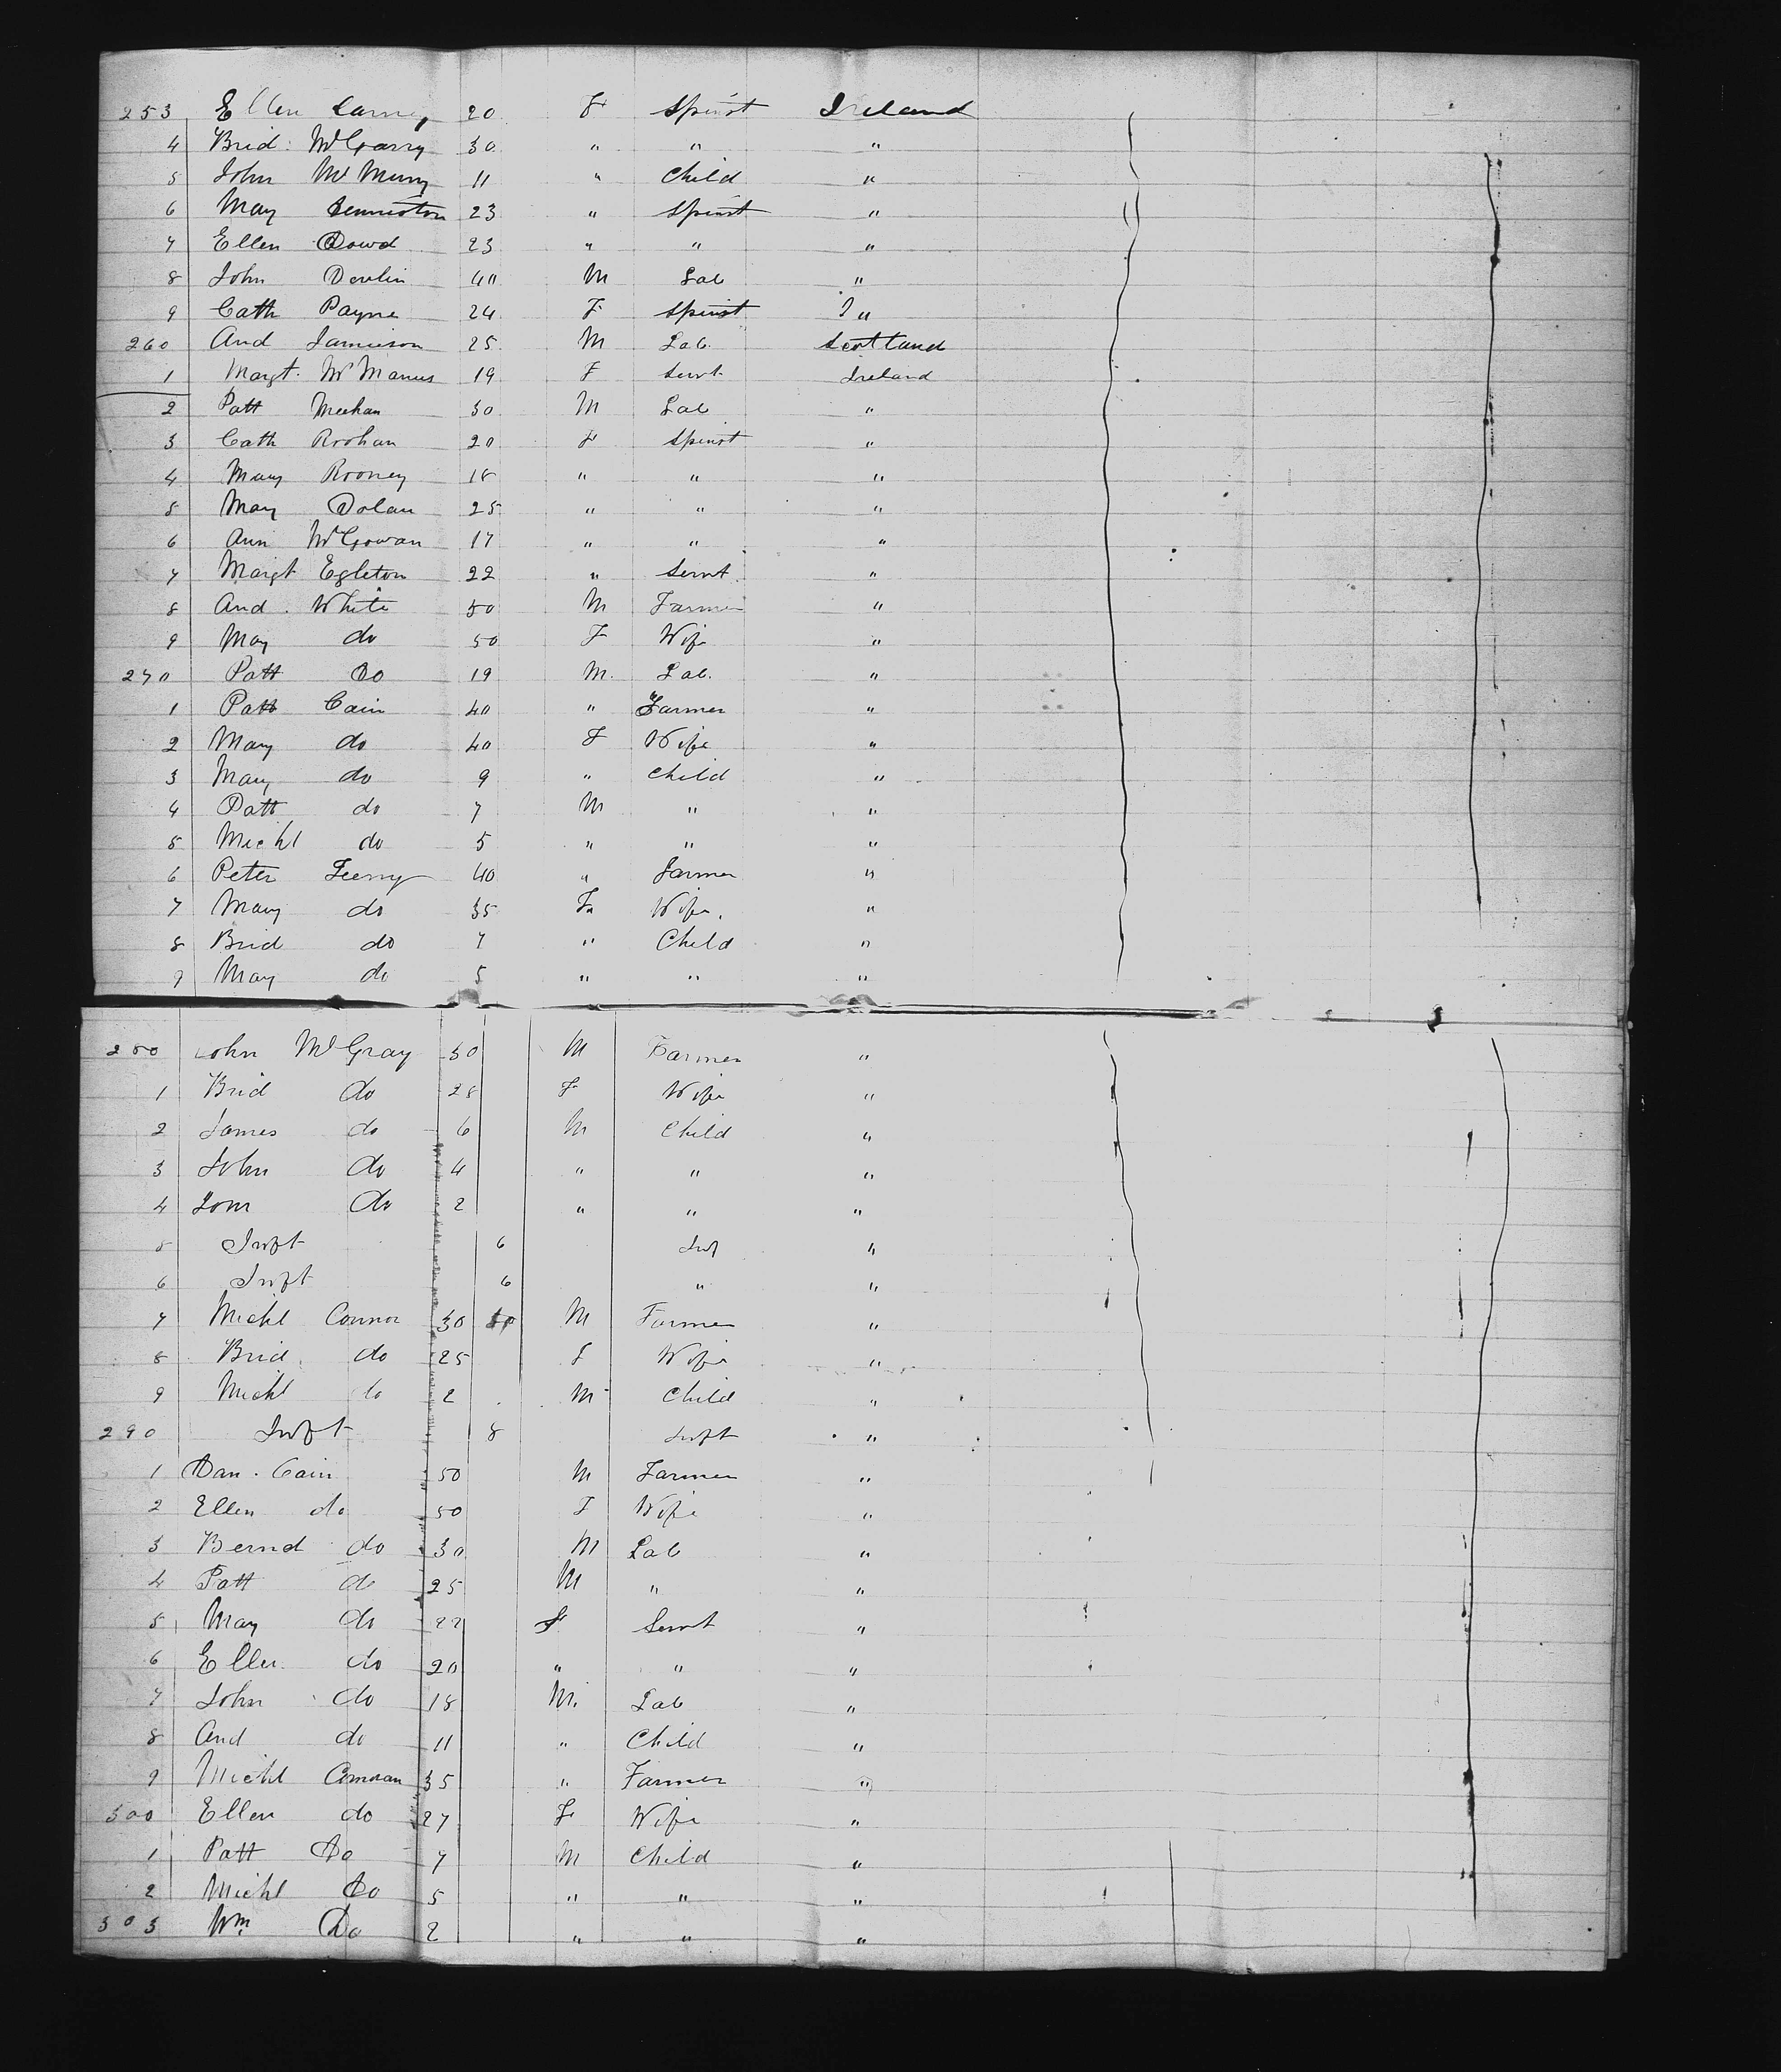 253 Ellen Carney 20 F Spinst Ireland
4 Brid. McGarry 30 " " "
5 John McMurry 11 " Child "
6 May Denniston 23 " Spinst "
7 Ellen Dowd 23 " " "
8 John Devlin 40 M Lab "
9 Cath Payne 24 F Spinst "
260 And Jamieson 25 M Lab. Scotland
1 Margt. McManus 19 F Servt Ireland
2 Patt Meehan 30 M Lab "
3 Cath Roohan 20 F Spinst "
4 Mary Rooney 18 " " "
5 May Dolan 25 " " "
6 Ann McGowan 17 " " "
7 Margt Egleton 22 " Servt "
8 And. White 50 M Farmer "
9 May do 50 F Wife "
270 Patt Do 19 M. Lab. "
1 Patt Cain 40 " Farmer "
2 Mary do 40 F Wife "
3 Mary do 9 " Child "
4 Patt do 7 M " "
5 Michl do 5 " " "
6 Peter Feeny 40 " Farmer "
7 Mary do 35 F Wife. "
8 Brid do 7 " Child "
9 May do 5 " " "
280 John McGray 30 M Farmer "
1 Brid do 28 F Wife "
2 James do 6 M Child "
3 John do 4 " " "
4 Tom do 2 " " "
5 Inft 6 Inf "
6 Inft 6 " "
7 Michl Connor 30 M Farmer "
8 Brid. do 25 F Wife "
9 Michl do 2 M Child "
290 Inft 8 Inft "
1 Dan. Cain 50 M Farmer "
2 Ellen do 50 F Wife "
3 Bernd do 30 M Lab "
4 Patt do 25 M " "
5 May do 22 F Servt "
6 Ellen do 20 " " "
7 John do 18 M. Lab "
8 And do 11 " Child "
9 Michl 35 " Farmer "
300 Ellen do 27 F Wife "
1 Patt Do 7 M Child "
2 Michl Do 5 " " "
303 Wm. Do 2 " " "